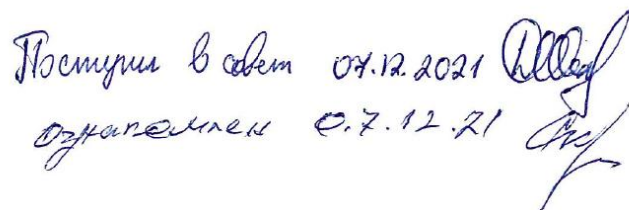 Поступил в совет 07.12.2021
ознакомлен 07.12.21